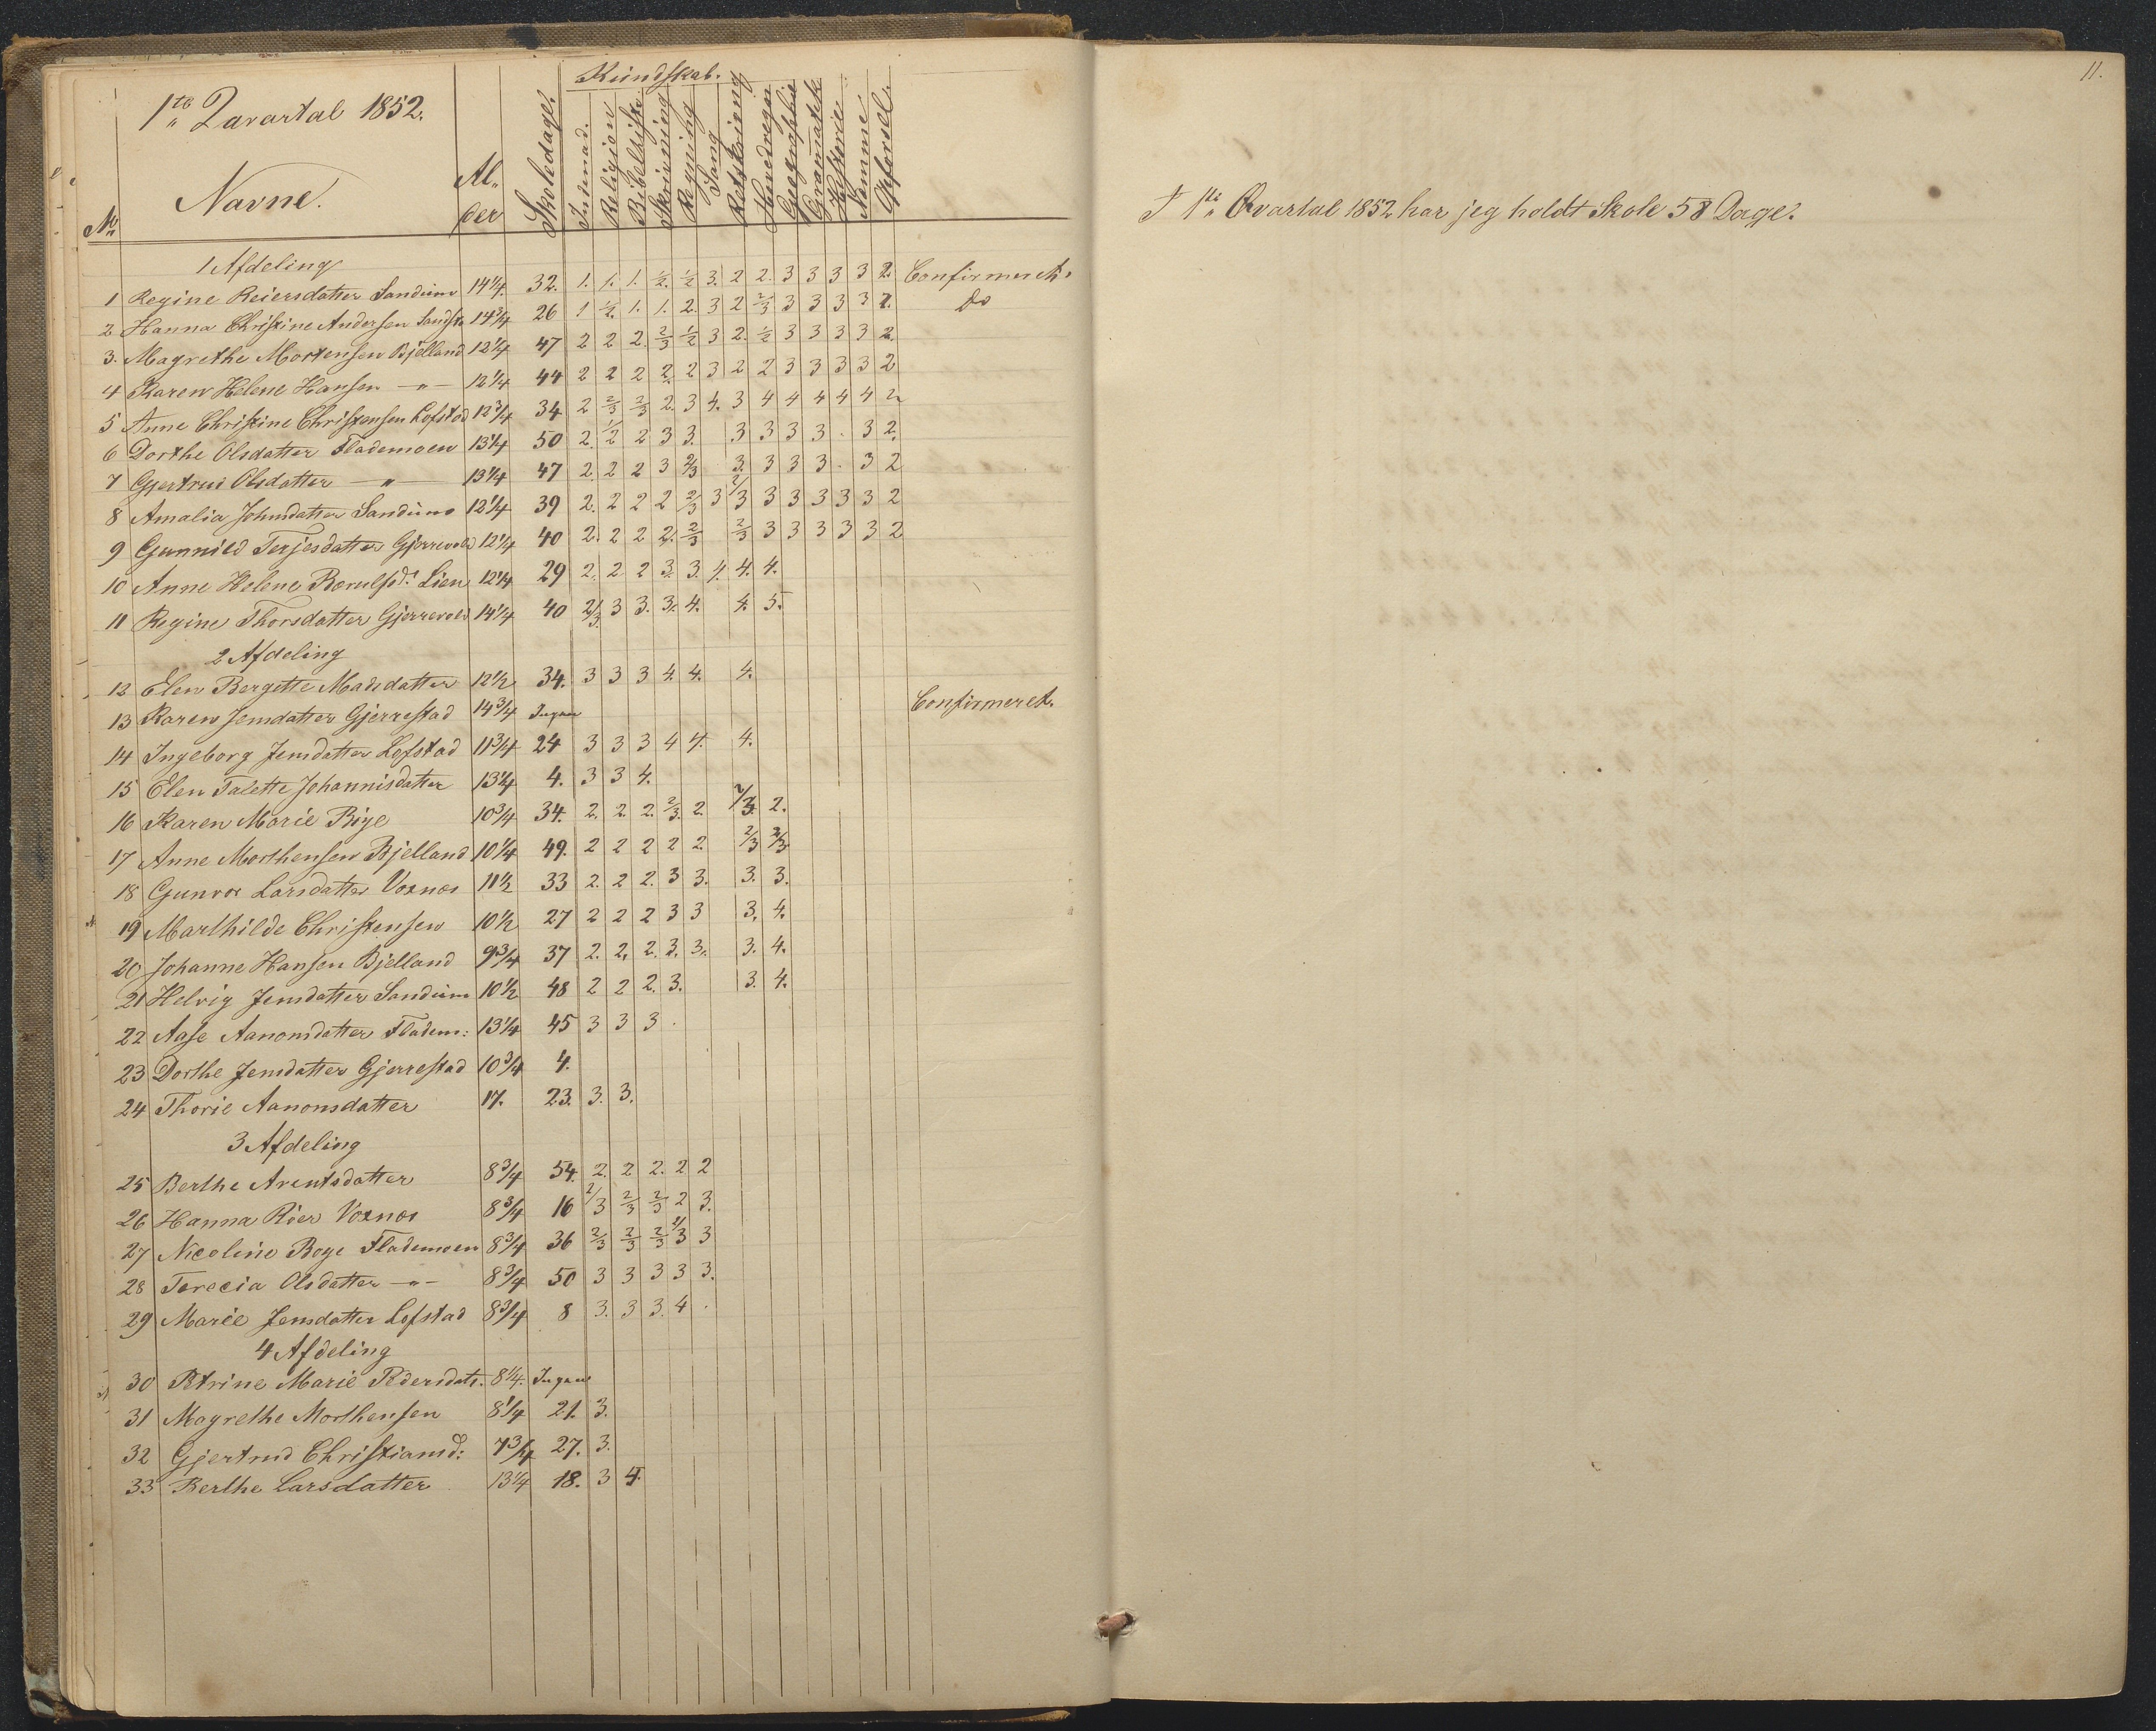 1te Qvartal 1852.
Kundskab.
No
Navne.
Alder
Skoledage.
Indenad.
Religion
Bibelhist.
Skrivning
Regning
Sang
Retskrivning
Hovedregn
Geographie
Gramatik
Historie
Nemme
Opførsel.
1 Afdeling
1 Regine Reiersdatter Sandum 14 1/4. 32. 1. 1. 1. 1/2. 1/2 3. 2 2. 3 3 3 3 2. Confirmeret.
2 Hanna Christine Andersen 14 3/4 26 1 1/2. 1. 1. 2. 3 2 2/3 3 3 3 3 2. Do
3. Magrethe Mortensen Bjelland 12 1/4 47 2 2 2. 2/3 1/2 3 2. 1/2 3 3 3 3 2.
4 Karen Helene Hansen —"— 12 1/4 44 2 2 2 2. 2 3 2 2 3 3 3 3 2
5 Anne Christine Christensen Lofstad 12 3/4 34 2 2/3 2/3 2. 3 4. 3 4 4 4 4 4 2
6 Dorthe Olsdatter Flademoen 13 1/4 50 2. 1/2 2 3 3. 3 3 3 3 . 3 2.
7 Gjertrud Olsdatter —"— 13 1/4 47 2. 2 2 3 2/3 3. 3 3 3 . 3 2
8 Amalia Johnsdatter Sandum 12 1/4 39 2. 2 2 2 2/3 3 2/3 3 3 3 3 3 2
9 Gunnild Terjesdatter Gjerrevold 12 1/4 40 2. 2 2 2. 2/3 2/3 3 3 3 3 3 2
10 Anne Helene Lien 12 1/4 29 2. 2 2 3. 3. 4. 4. 4.
11 Regine Thorsdatter Gjerrevold 14 1/4 40 2/3. 3 3. 3. 4. 4. 5.
2 Afdeling
12 Elen Bergette Madsdatter 12 1/2 34. 3 3 3 4. 4. 4.
13 Karen Jensdatter Gjerrestad 14 3/4 Ingen Confirmeret.
14 Ingeborg Jensdatter Lofstad 11 3/4 24 3 3 3 4 4. 4.
15 Elen Talette Johannisdatter 13 1/4 4. 3 3 4.
16 Karen Marie Boye 10 3/4 34. 2. 2. 2. 2/3. 2. 2/3. 2.
17 Anne Morthensen Bjelland 10 1/4 49. 2 2 2 2 2. 2/3 2/3
18 Gunvor Larsdatter Voxnes 11 1/2 33 2. 2 2. 3 3. 3. 3.
19 Marthilde Christensen 10 1/2 27 2 2 2 3 3 3. 4.
20 Johanne Hansen Bjelland 9 3/4 37 2. 2. 2. 3. 3. 3. 4.
21 Helvig Jensdatter Sandum 10 1/2 48 2 2 2. 3. 3. 4.
22 Aase Aanonsdatter Fladem: 13 1/4 45 3 3 3 .
23 Dorthe Jensdatter Gjerrestad 10 3/4 4.
24 Thorie Aanonsdatter 17. 23. 3. 3.
3 Afdeling
25 Berthe Arentsdatter 8 3/4 54. 2. 2 2. 2 2
26 Hanna Røer Voxnes 8 3/4 16 2/3 2/3 2/3 2 3.
27 Nicoline Boye Flademoen 8 3/4 36 2/3 2/3 2/3 2/3 3
28 Terecia Olsdatter —"— 8 3/4 50 3 3 3 3 3.
29 Marie Jensdatter Lofstad 8 3/4 8 3. 3 3. 4 .
4 Afdeling
30 Petrine Marie Pedersdatr. 8 1/4. Ingen
31 Magrethe Morthensen 8 1/4 21. 3.
32 Gjertrud Christiansd: 7 3/4 27. 3.
33 Berthe Larsdatter 13 1/4 18. 3 4.
11.
I 1te Qvartal 1852 har jeg holdt Skole 58 Dage.